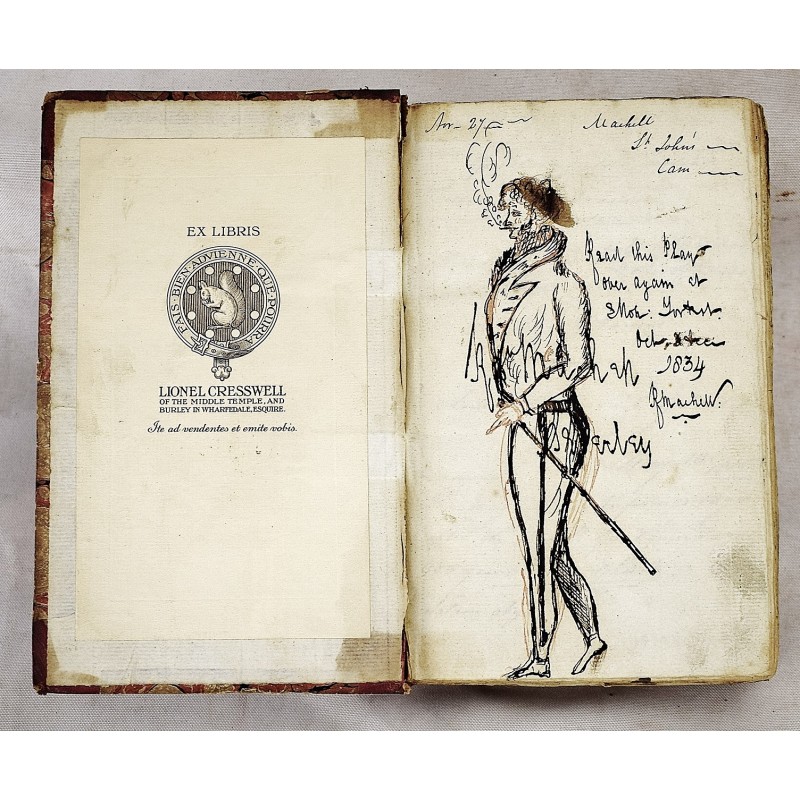 EX LIBRIS
FAIS·BIEN·ADVIENNE·QUE·POURRA
LIONEL CRESSWELL
OF THE MIDDLE TEMPLE, AND
BURLEY IN WHARFEDALE, ESQUIRE.
Ite ad vendentes et emite vobis.
Nov- 27
Machell
St John's
Cam
Read this Play
over again at
Oct
1834
RMachell.
Machell
Beverley